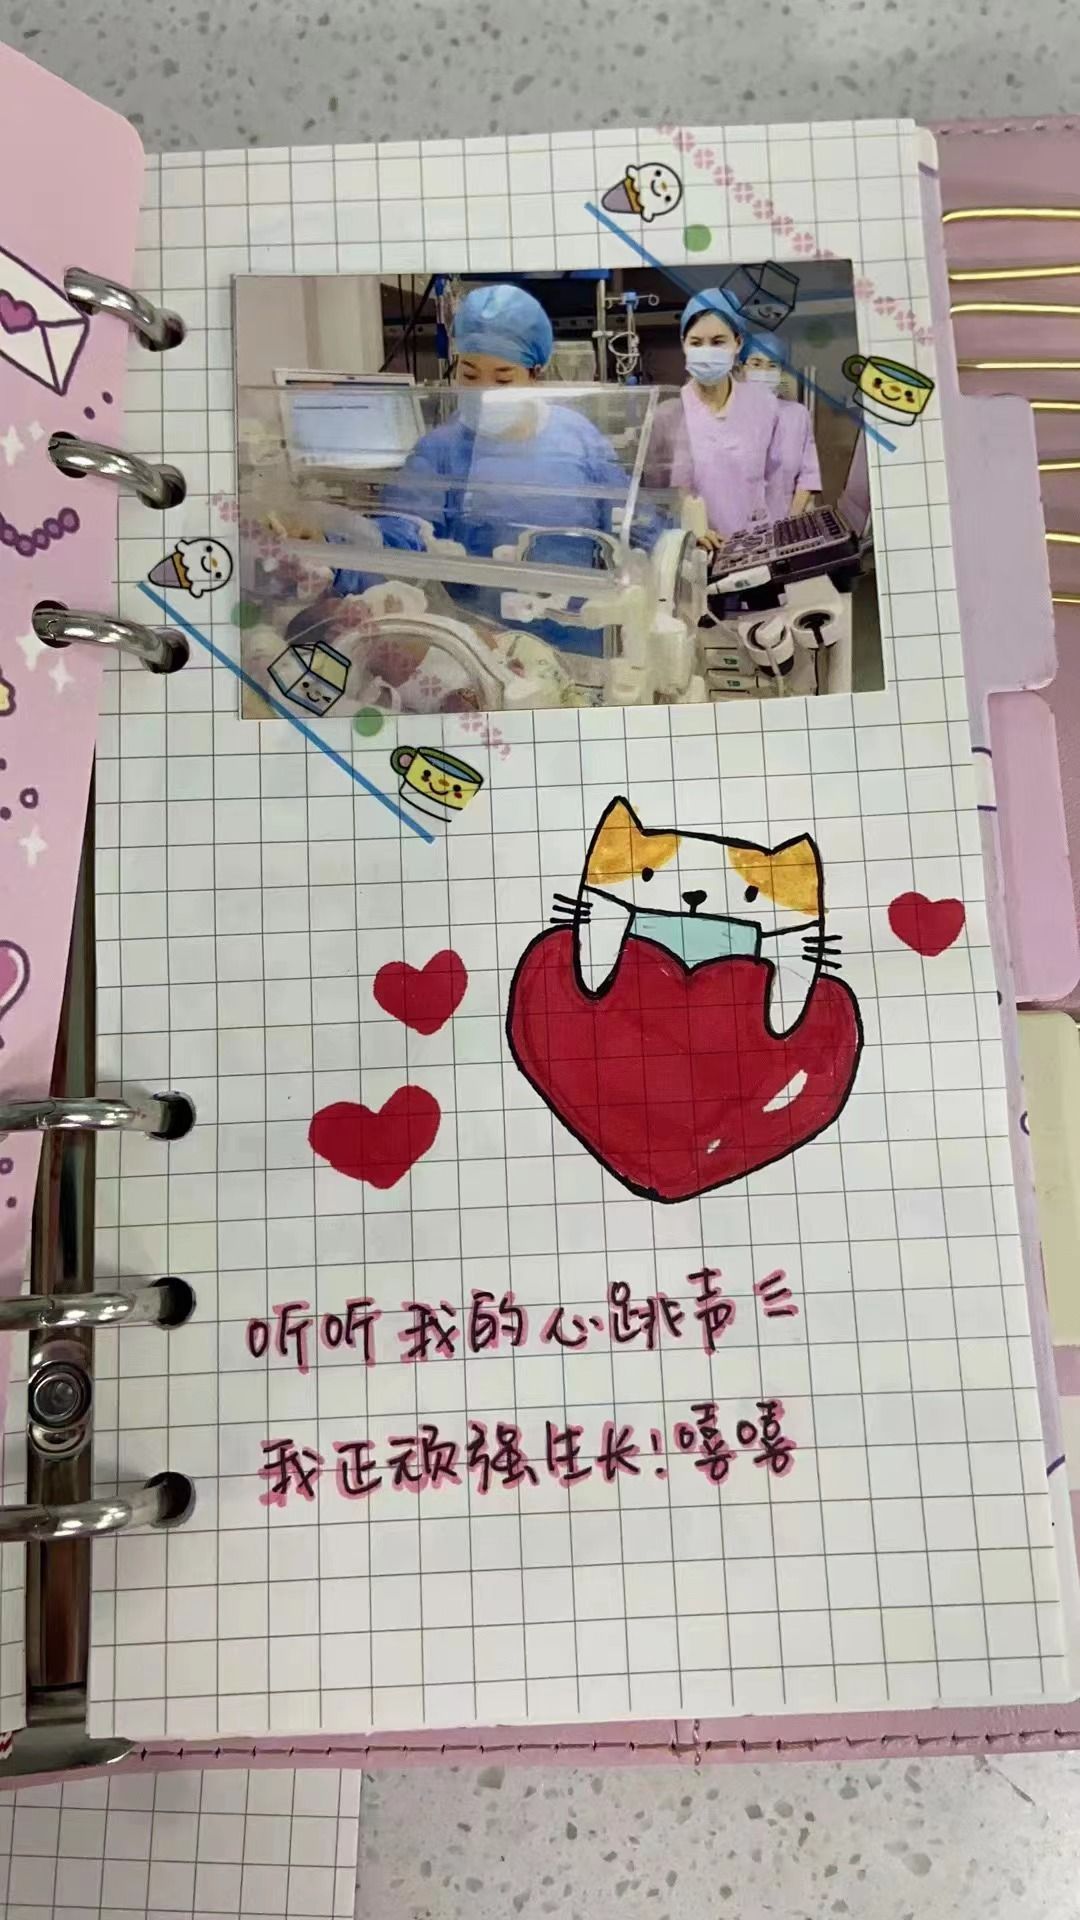 听听我的心跳声三
我正顽强生长！嘻嘻